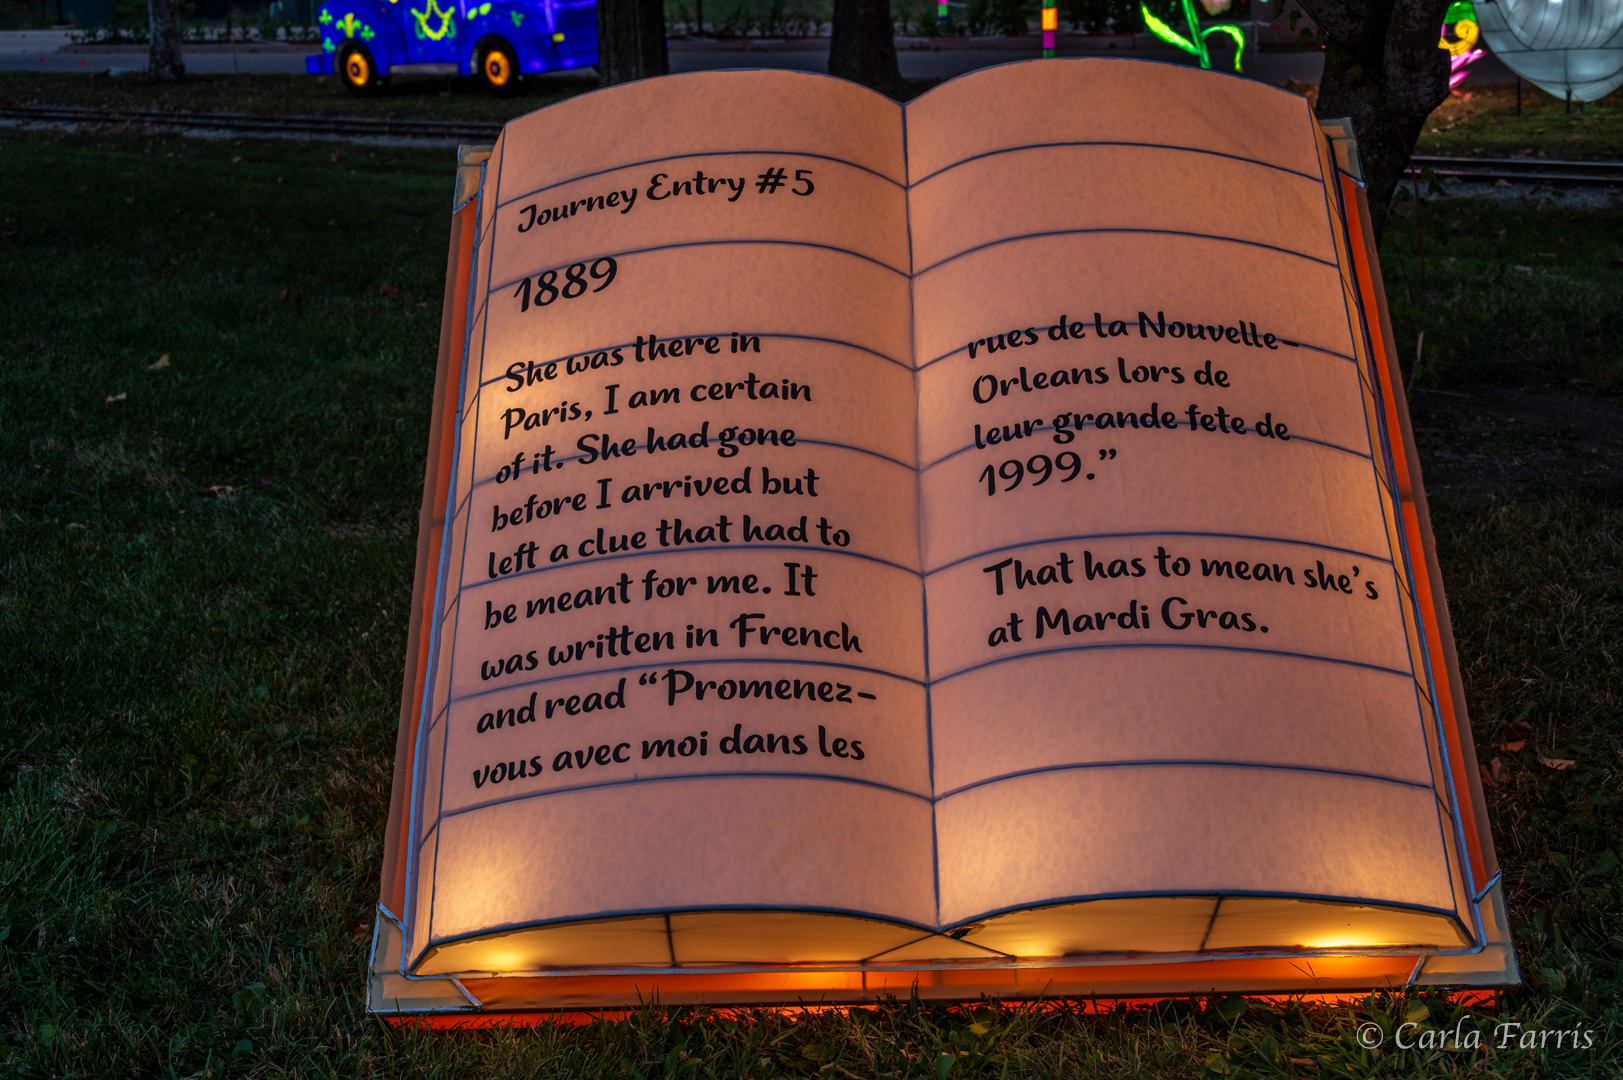 Journey Entry #5
1889
She was there in
Paris, I am certain
of it. She had gone
before I arrived but
left a clue that had to
be meant for me. It
was written in French
and read “Promenez-
vous avec moi dans les
rues de la Nouvelle-
Orleans lors de
leur grande fete de
1999.”
That has to mean she's
at Mardi Gras.
© Carla Farris